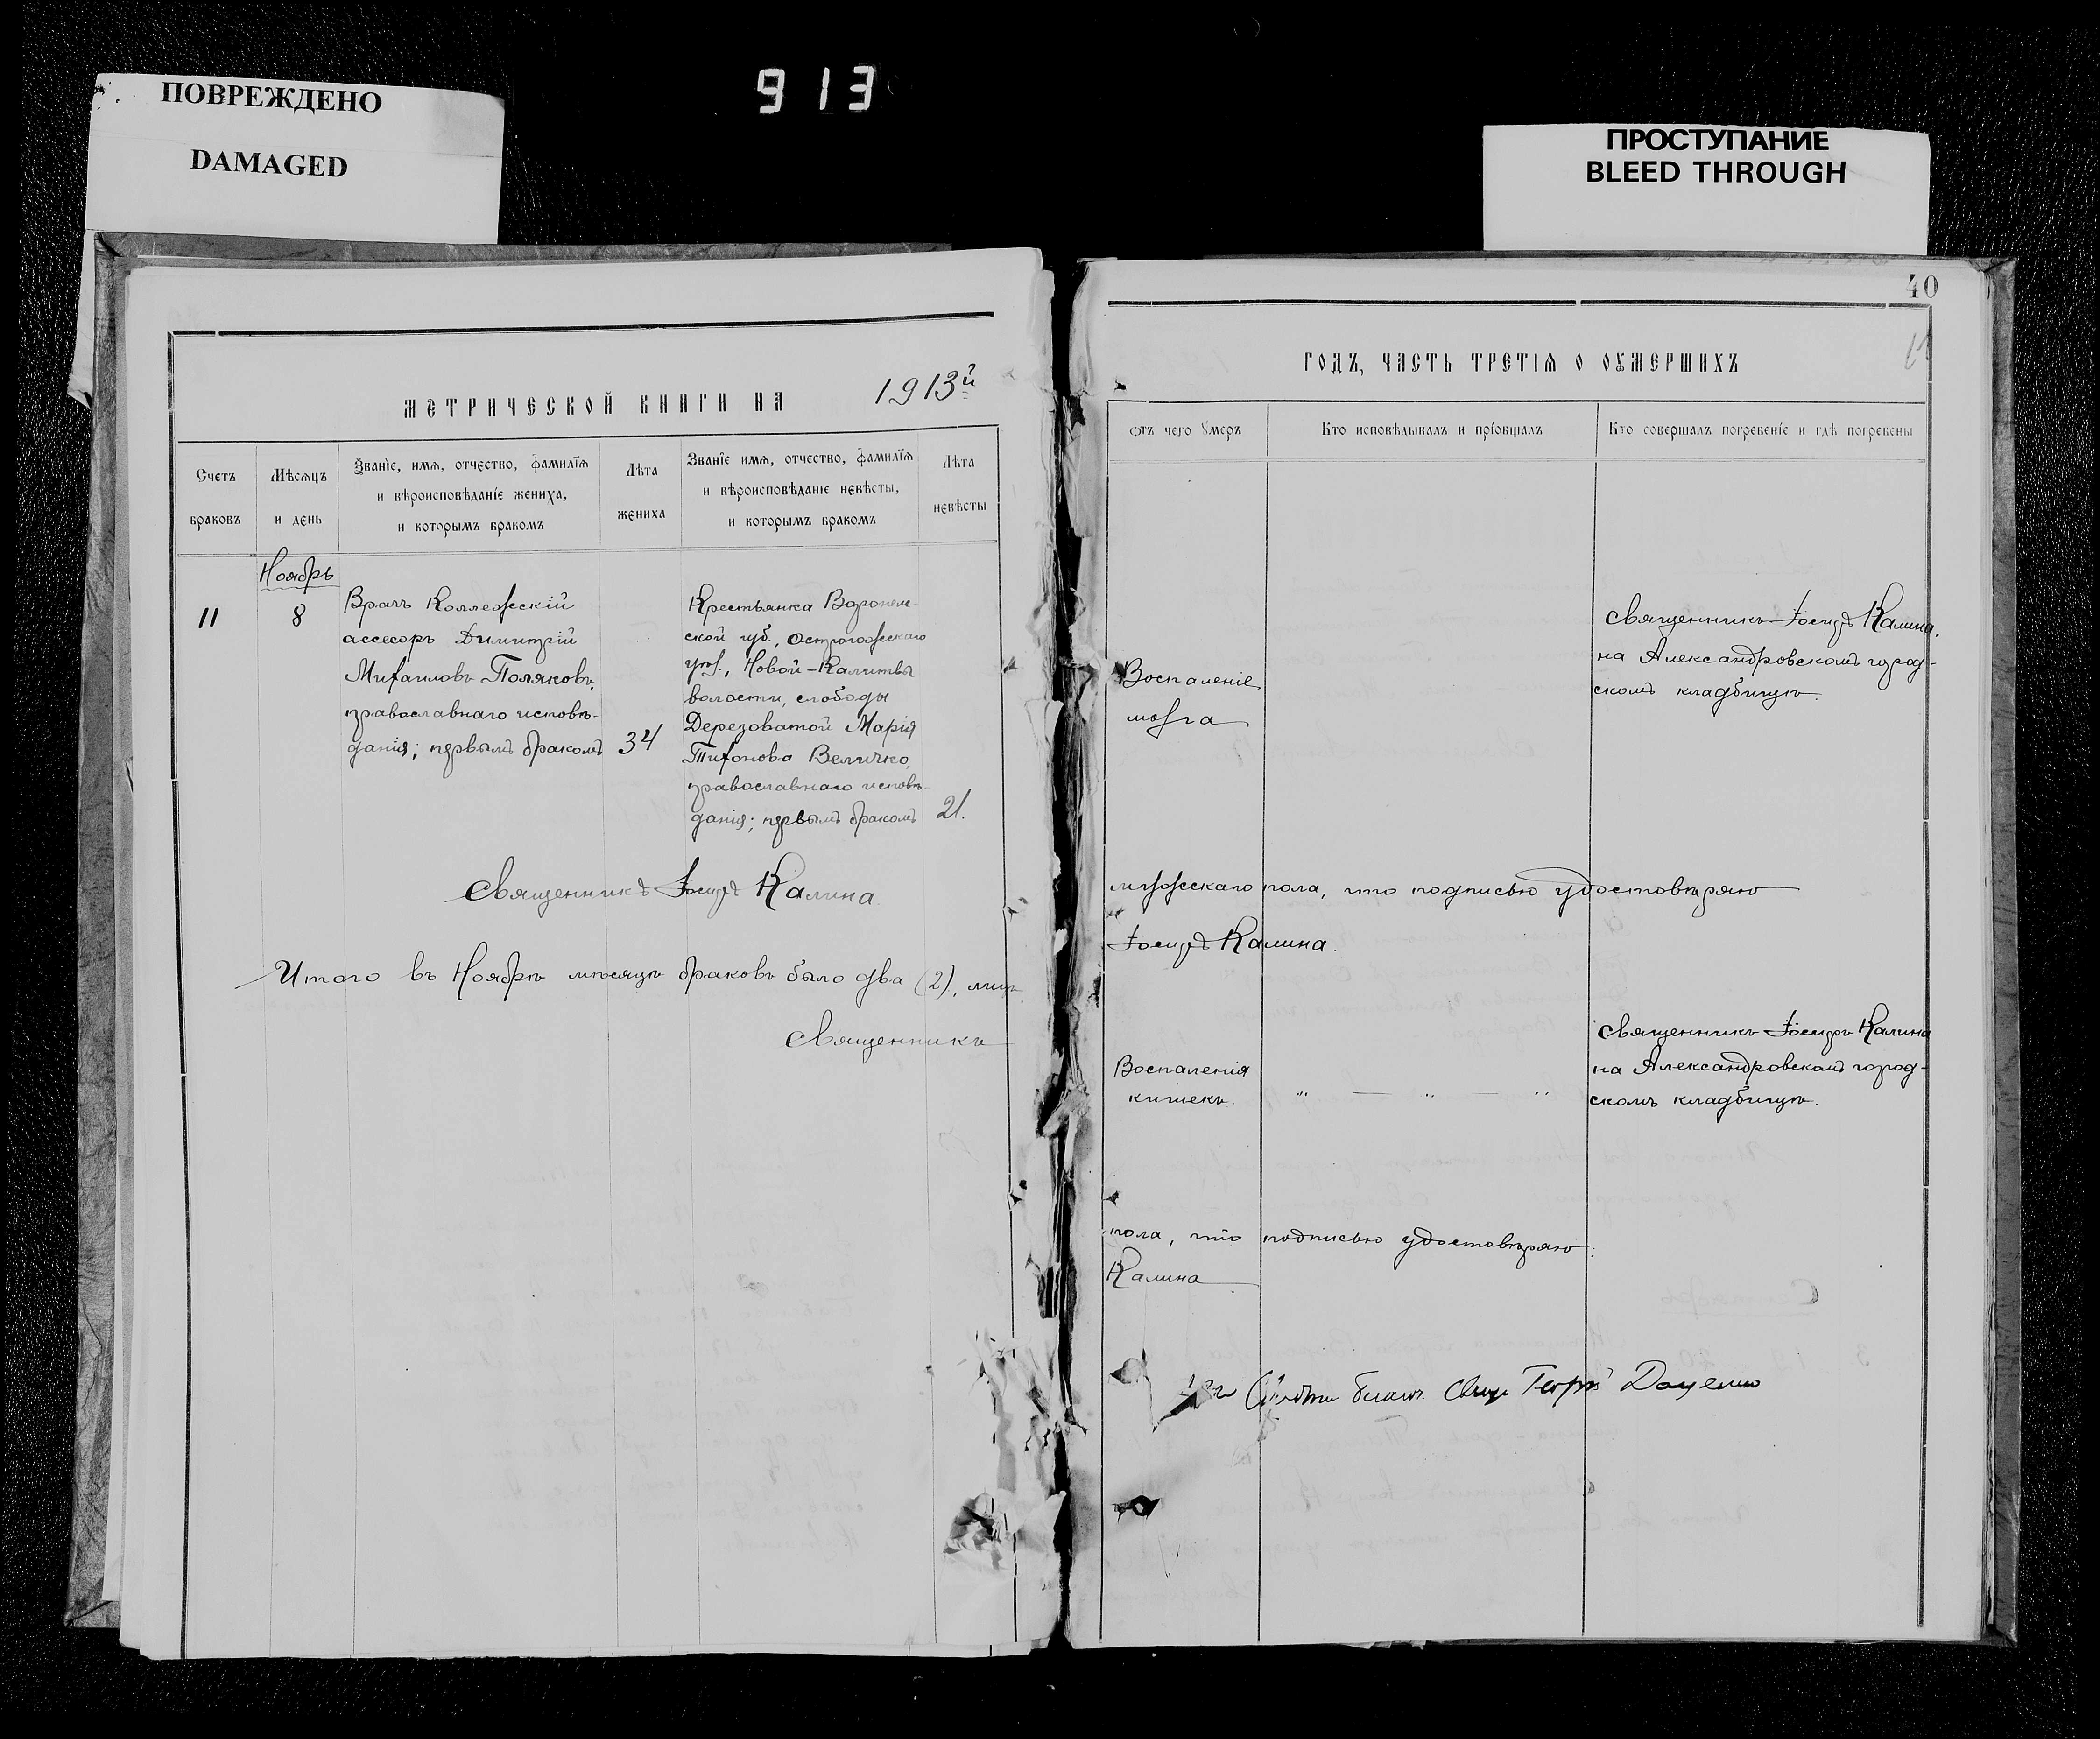 913
ПОВРЕЖДЕНО
DAMAGED
ПРОСТУПАНИЕ
BLEED THROUGH
МЕТРИЧЕСКОЙ КНИГИ НА 1913й
Счетъ браковъ
Мѣсяцъ и день
Званіе, имя, отчество, фамилія
и вѣроисповѣданіе жениха,
и которымъ бракомъ
Лѣта жениха
Званіе имя, отчество, фамилія
и вѣроисповѣданіе невѣсты,
и которымъ бракомъ
Лѣта невѣсты
Ноябрь
11
8
Врачъ Коллежскій
ассесоръ Димитрій
Михаиловъ Поляковъ,
православнаго исповѣ-
данія; первымъ бракомъ
34
Крестьянка Воронеж-
ской губ., Острогожскаго
уѣз., Новой-Калитвы
волости, слободы
Дерезоватой Марія
Тихонова Величко,
православнаго исповѣ-
данія; первымъ бракомъ
21.
Священникъ Іосифъ Калина.
Итого въ Ноябрѣ мѣсяцѣ браковъ было два (2),
Священникъ
40
ГОДЪ, ЧАСТЬ ТРЕТІЯ О ОУМЕРШИХЪ
Отъ чего умеръ
Кто исповѣдывалъ и пріобщалъ
Кто совершалъ погребеніе и гдѣ погребены
Воспаленіе
мозга
Священникъ Іосифъ Калина.
на Александровскомъ город-
скомъ кладбищѣ.
мужескаго пола, что подписью удостовѣряю
Іосифъ Калина.
Воспаленія
кишекъ.
" — " — "
Священникъ Іосифъ Калина
на Александровскомъ город-
скомъ кладбищѣ.
пола, что подписью удостовѣряю:
Калина
Доценко